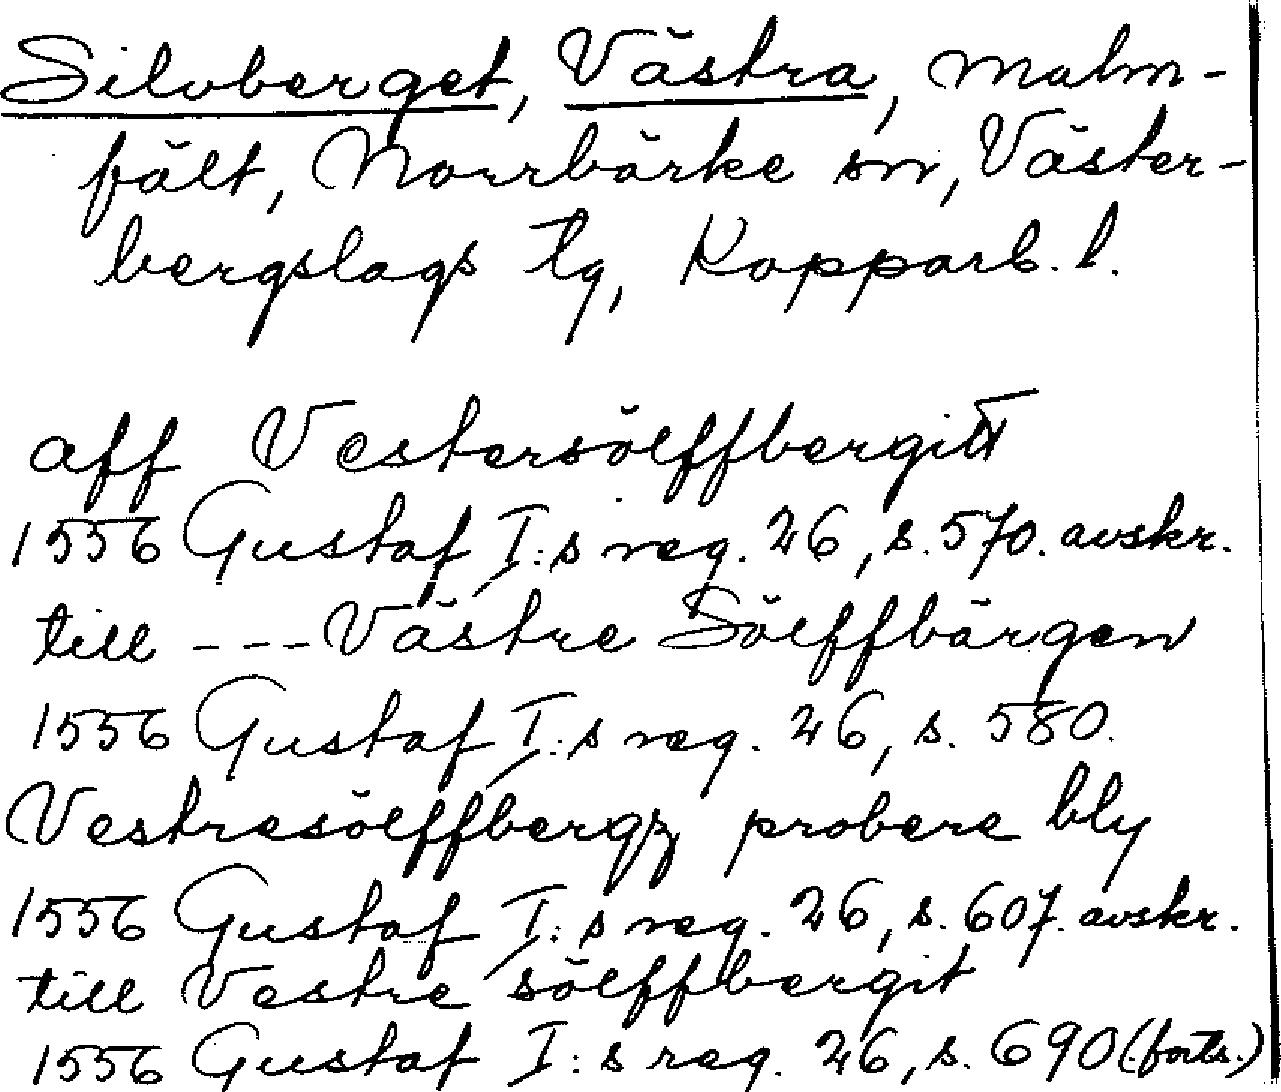 Silvberget, Västra, malm-
fält, Norrbärke sn, Väster-
bergslags tg, Kopparb. l.
aff Vestersölffbergitt
1556 Gustaf I:s reg. 26, s. 570. avskr.
till --- Västre Sölffbärgen
1556 Gustaf I:s reg. 26, s. 580.
Vestresölffbergz probere bly
1556 Gustaf I:s reg. 26, s. 607. avskr.
till Vestre sölffbergit
1556 Gustaf I:s reg. 26, s. 690 (forts.)